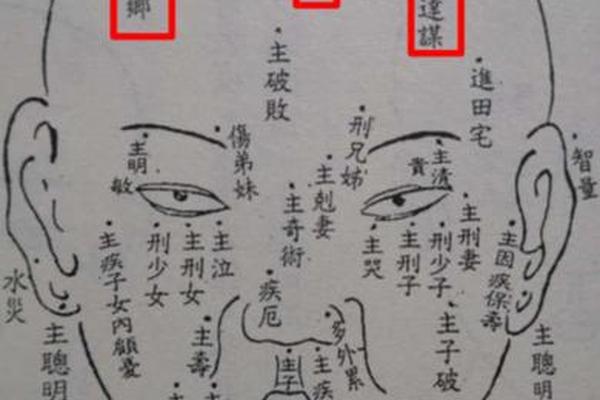 鄉
違謀
進田宅
主破敗
刑兄姊
傷弟妹
主明敏
主清貴
智量
主剋妻
主奇術
主刑妻
刑少子
主刑子
主哭
主泣
主刑女
刑少女
主疾子女內顧憂
主因疾保壽
水災
疾厄
多外累
主子破
主壽
主聰明
主聰明
主子
主疾